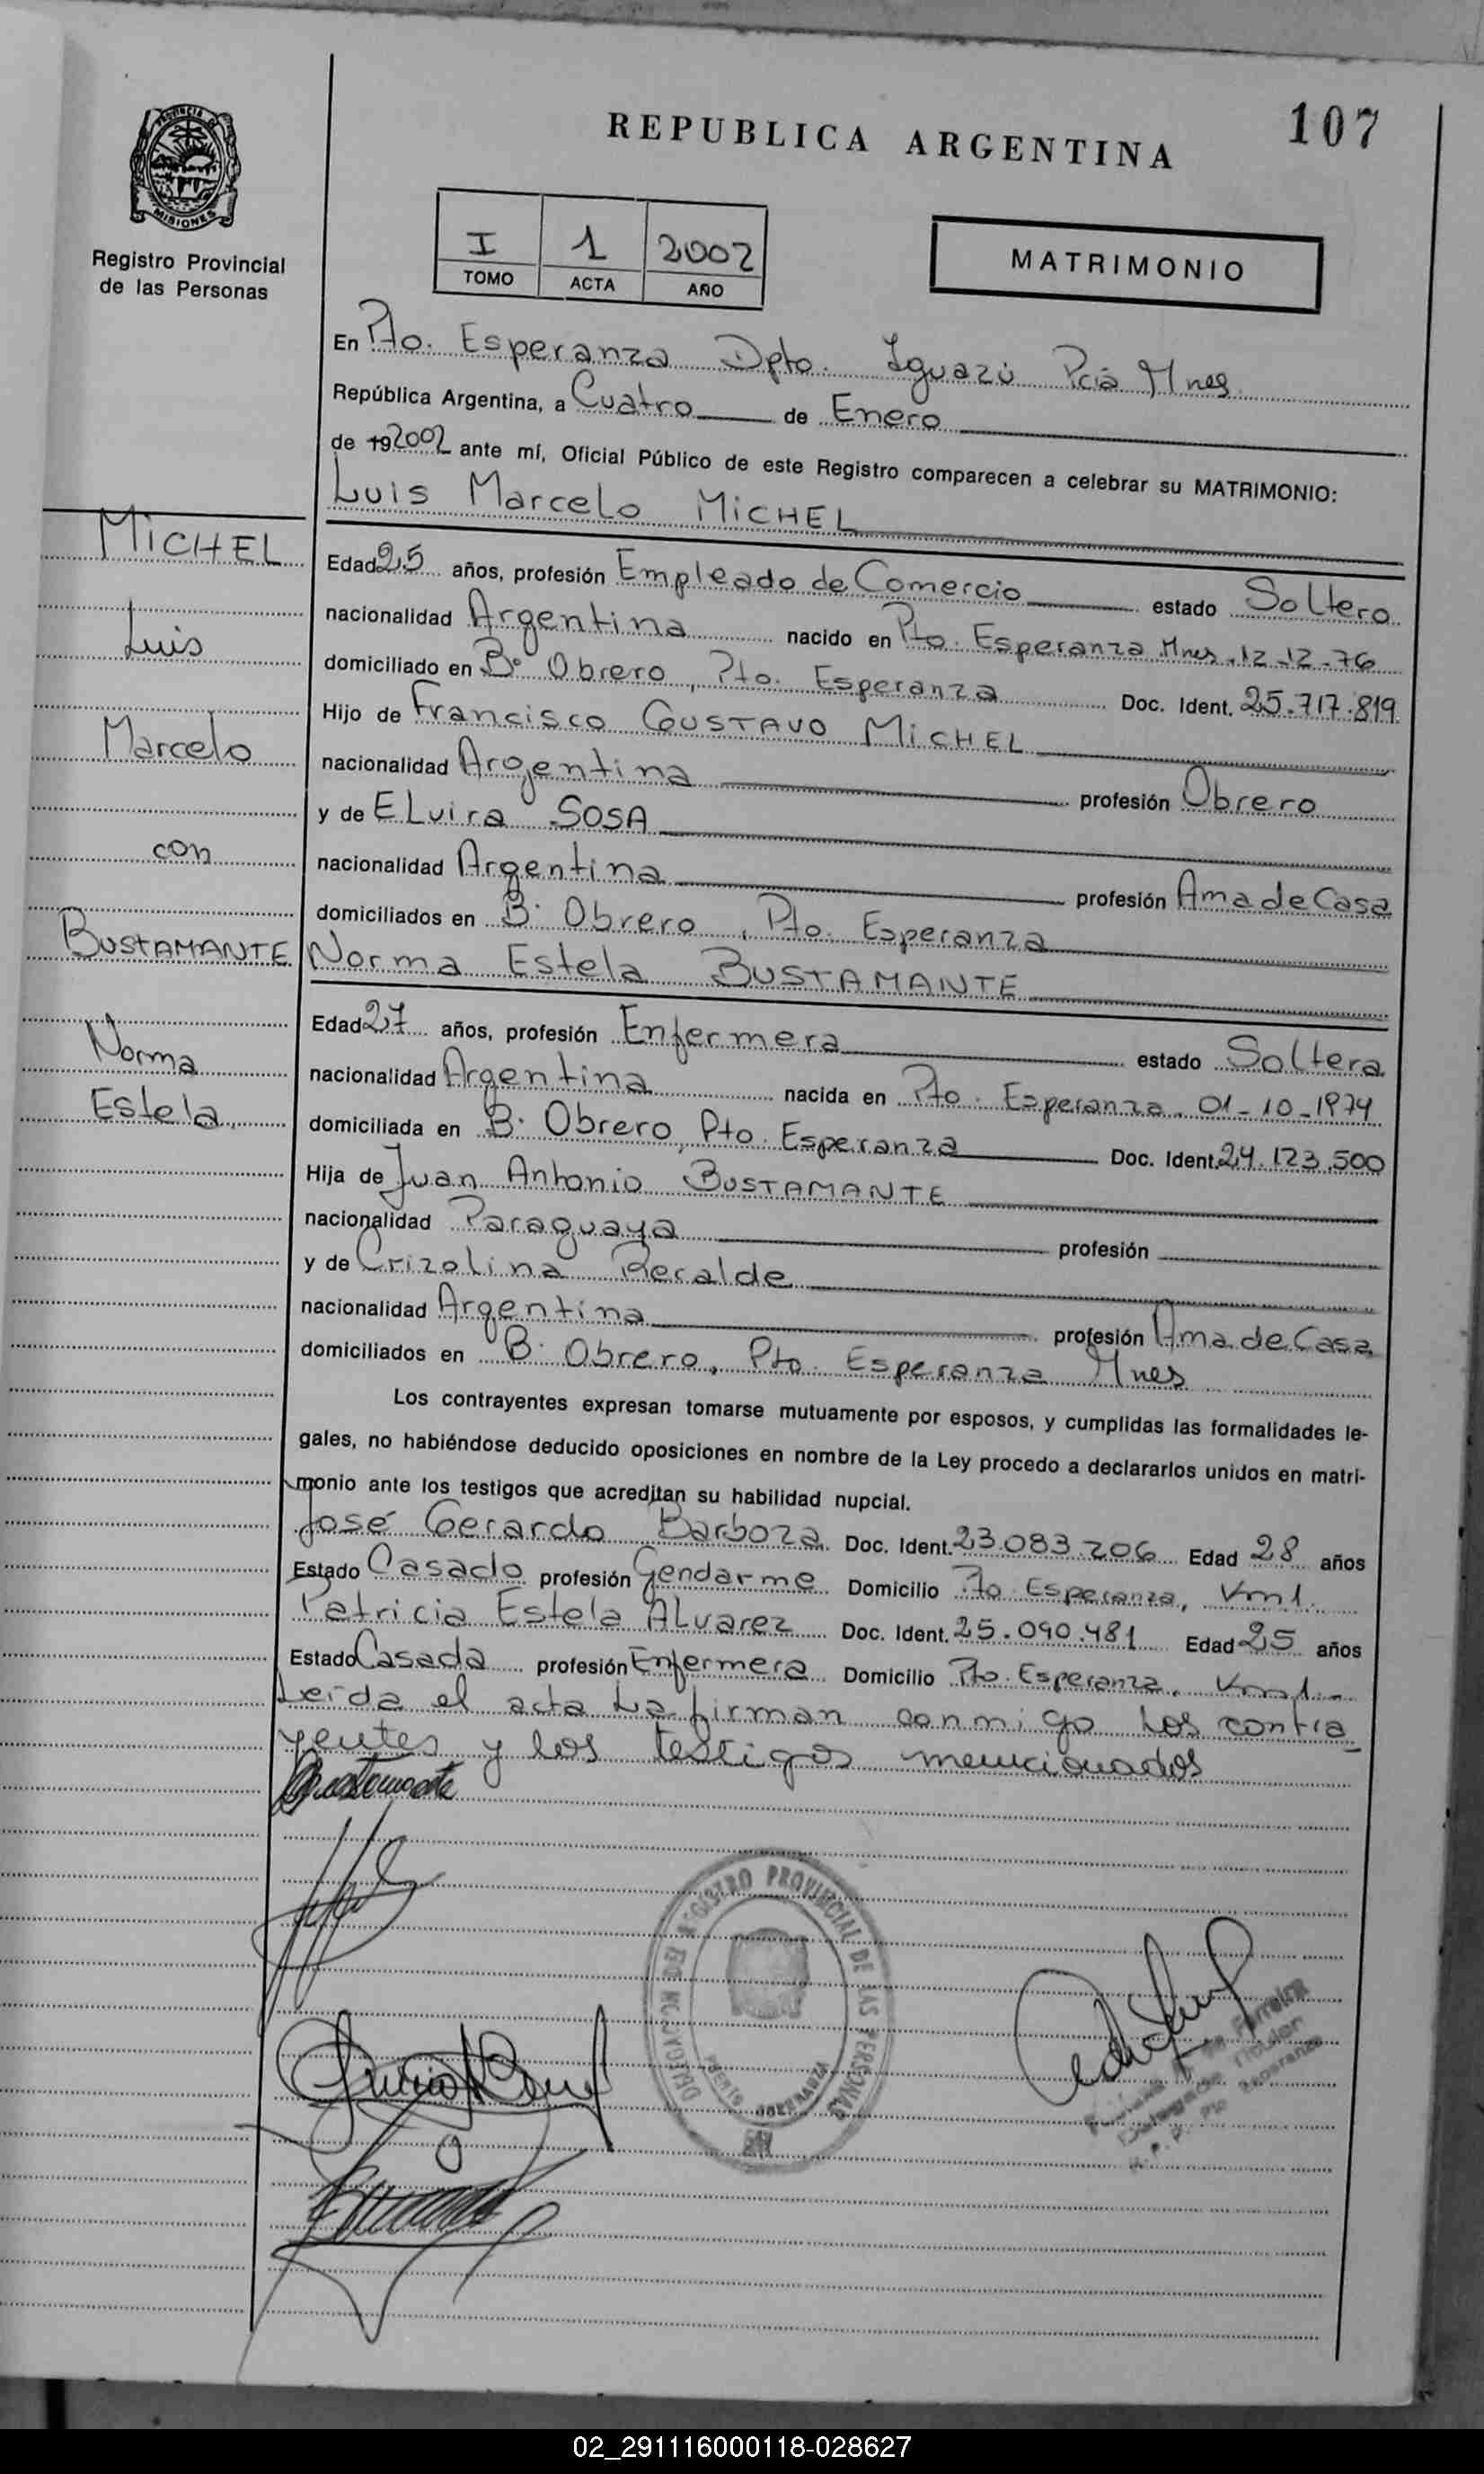 107
REPUBLICA ARGENTINA
PROVINCIA D
MISIONES
Registro Provincial
de las Personas
I 1 2002
TOMO ACTA AÑO
MATRIMONIO
En Pto. Esperanza Dpto. Iguazú Pcia Mnes.
República Argentina, a Cuatro de Enero
de 192002 ante mí, Oficial Público de este Registro comparecen a celebrar su MATRIMONIO:
Luis Marcelo MICHEL
MICHEL
Luis
Marcelo
con
BUSTAMANTE
Norma
Estela
Edad 25 años, profesión Empleado de Comercio estado Soltero
nacionalidad Argentina nacido en Pto. Esperanza Mnes. 12-12-76
domiciliado en Bº Obrero, Pto. Esperanza Doc. Ident. 25.717.819
Hijo de Francisco GUSTAVO MICHEL
nacionalidad Argentina profesión Obrero
y de ELvira SOSA
nacionalidad Argentina profesión Ama de Casa
domiciliados en B: Obrero, Pto. Esperanza
Norma Estela BUSTAMANTE
Edad 27 años, profesión Enfermera estado Soltera
nacionalidad Argentina nacida en Pto. Esperanza. 01-10-1974
domiciliada en B: Obrero, Pto. Esperanza Doc. Ident. 24.123.500
Hija de Juan Antonio BUSTAMANTE
nacionalidad Paraguaya profesión
y de Crizolina Recalde
nacionalidad Argentina profesión Ama de Casa
domiciliados en B: Obrero, Pto. Esperanza Mnes
Los contrayentes expresan tomarse mutuamente por esposos, y cumplidas las formalidades le-
gales, no habiéndose deducido oposiciones en nombre de la Ley procedo a declararlos unidos en matri-
monio ante los testigos que acreditan su habilidad nupcial.
José Gerardo Barboza Doc. Ident. 23.083.206 Edad 28 años
Estado Casado profesión Gendarme Domicilio Pto. Esperanza, Km1.
Patricia Estela ALvarez Doc. Ident. 25.090.481 Edad 25 años
Estado Casada profesión Enfermera Domicilio Pto. Esperanza, Km1.-
Leída el acta La firman conmigo Los contra_
yentes y los testigos mencionados
Bustamante
DELEGACION DEL REGISTRO PROVINCIAL DE LAS PERSONAS
PUERTO ESPERANZA
de Ferreira
Titular
Esperanza
02_291116000118-028627